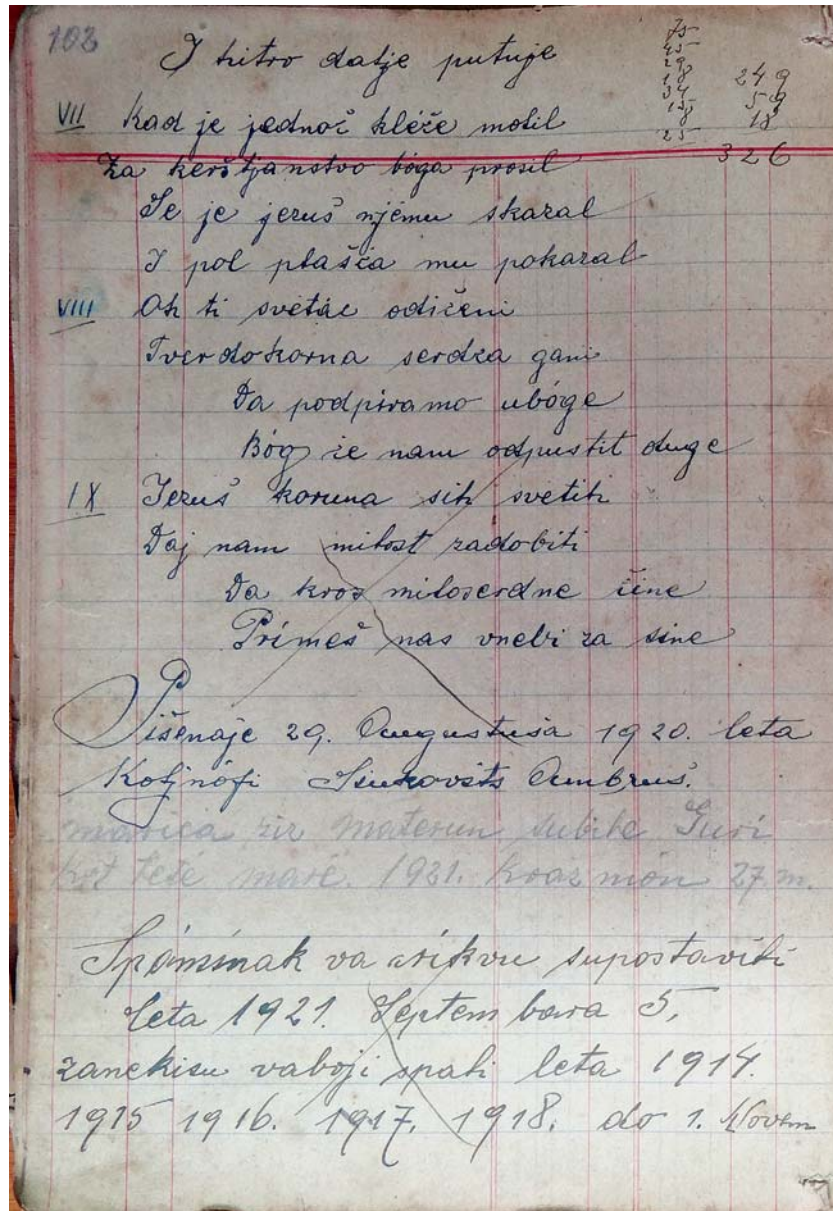 103
I hitro dalje putuje
75
45
29
18
34
15
8
25
249
59
18
326
VII Kad je jednoč kléče molil
Za kerštjanstvo bóga prosil
Se je jezuš njému skazal
I pol plašća mu pokazal
VIII Oh ti svétac odičeni
Tverdokorna serdza gani
Da podpiramo ubóge
Bóg će nam odpustit duge
IX Jezuš koruna sih svetih
Daj nam milost zadobiti
Da kroz miloserdne čine
Primeš nas vnebi za sine
Pišenaje 29. Augustuša 1920. leta
Koljnófi Ambruš.
marica zir materun
leté marć. 1921. 27. m.
Spóminak va crikvu supostavili
leta 1921. Septembara 5.
zanekisu vaboji spali leta 1914.
1915 1916. 1917. 1918. do 1. Novem